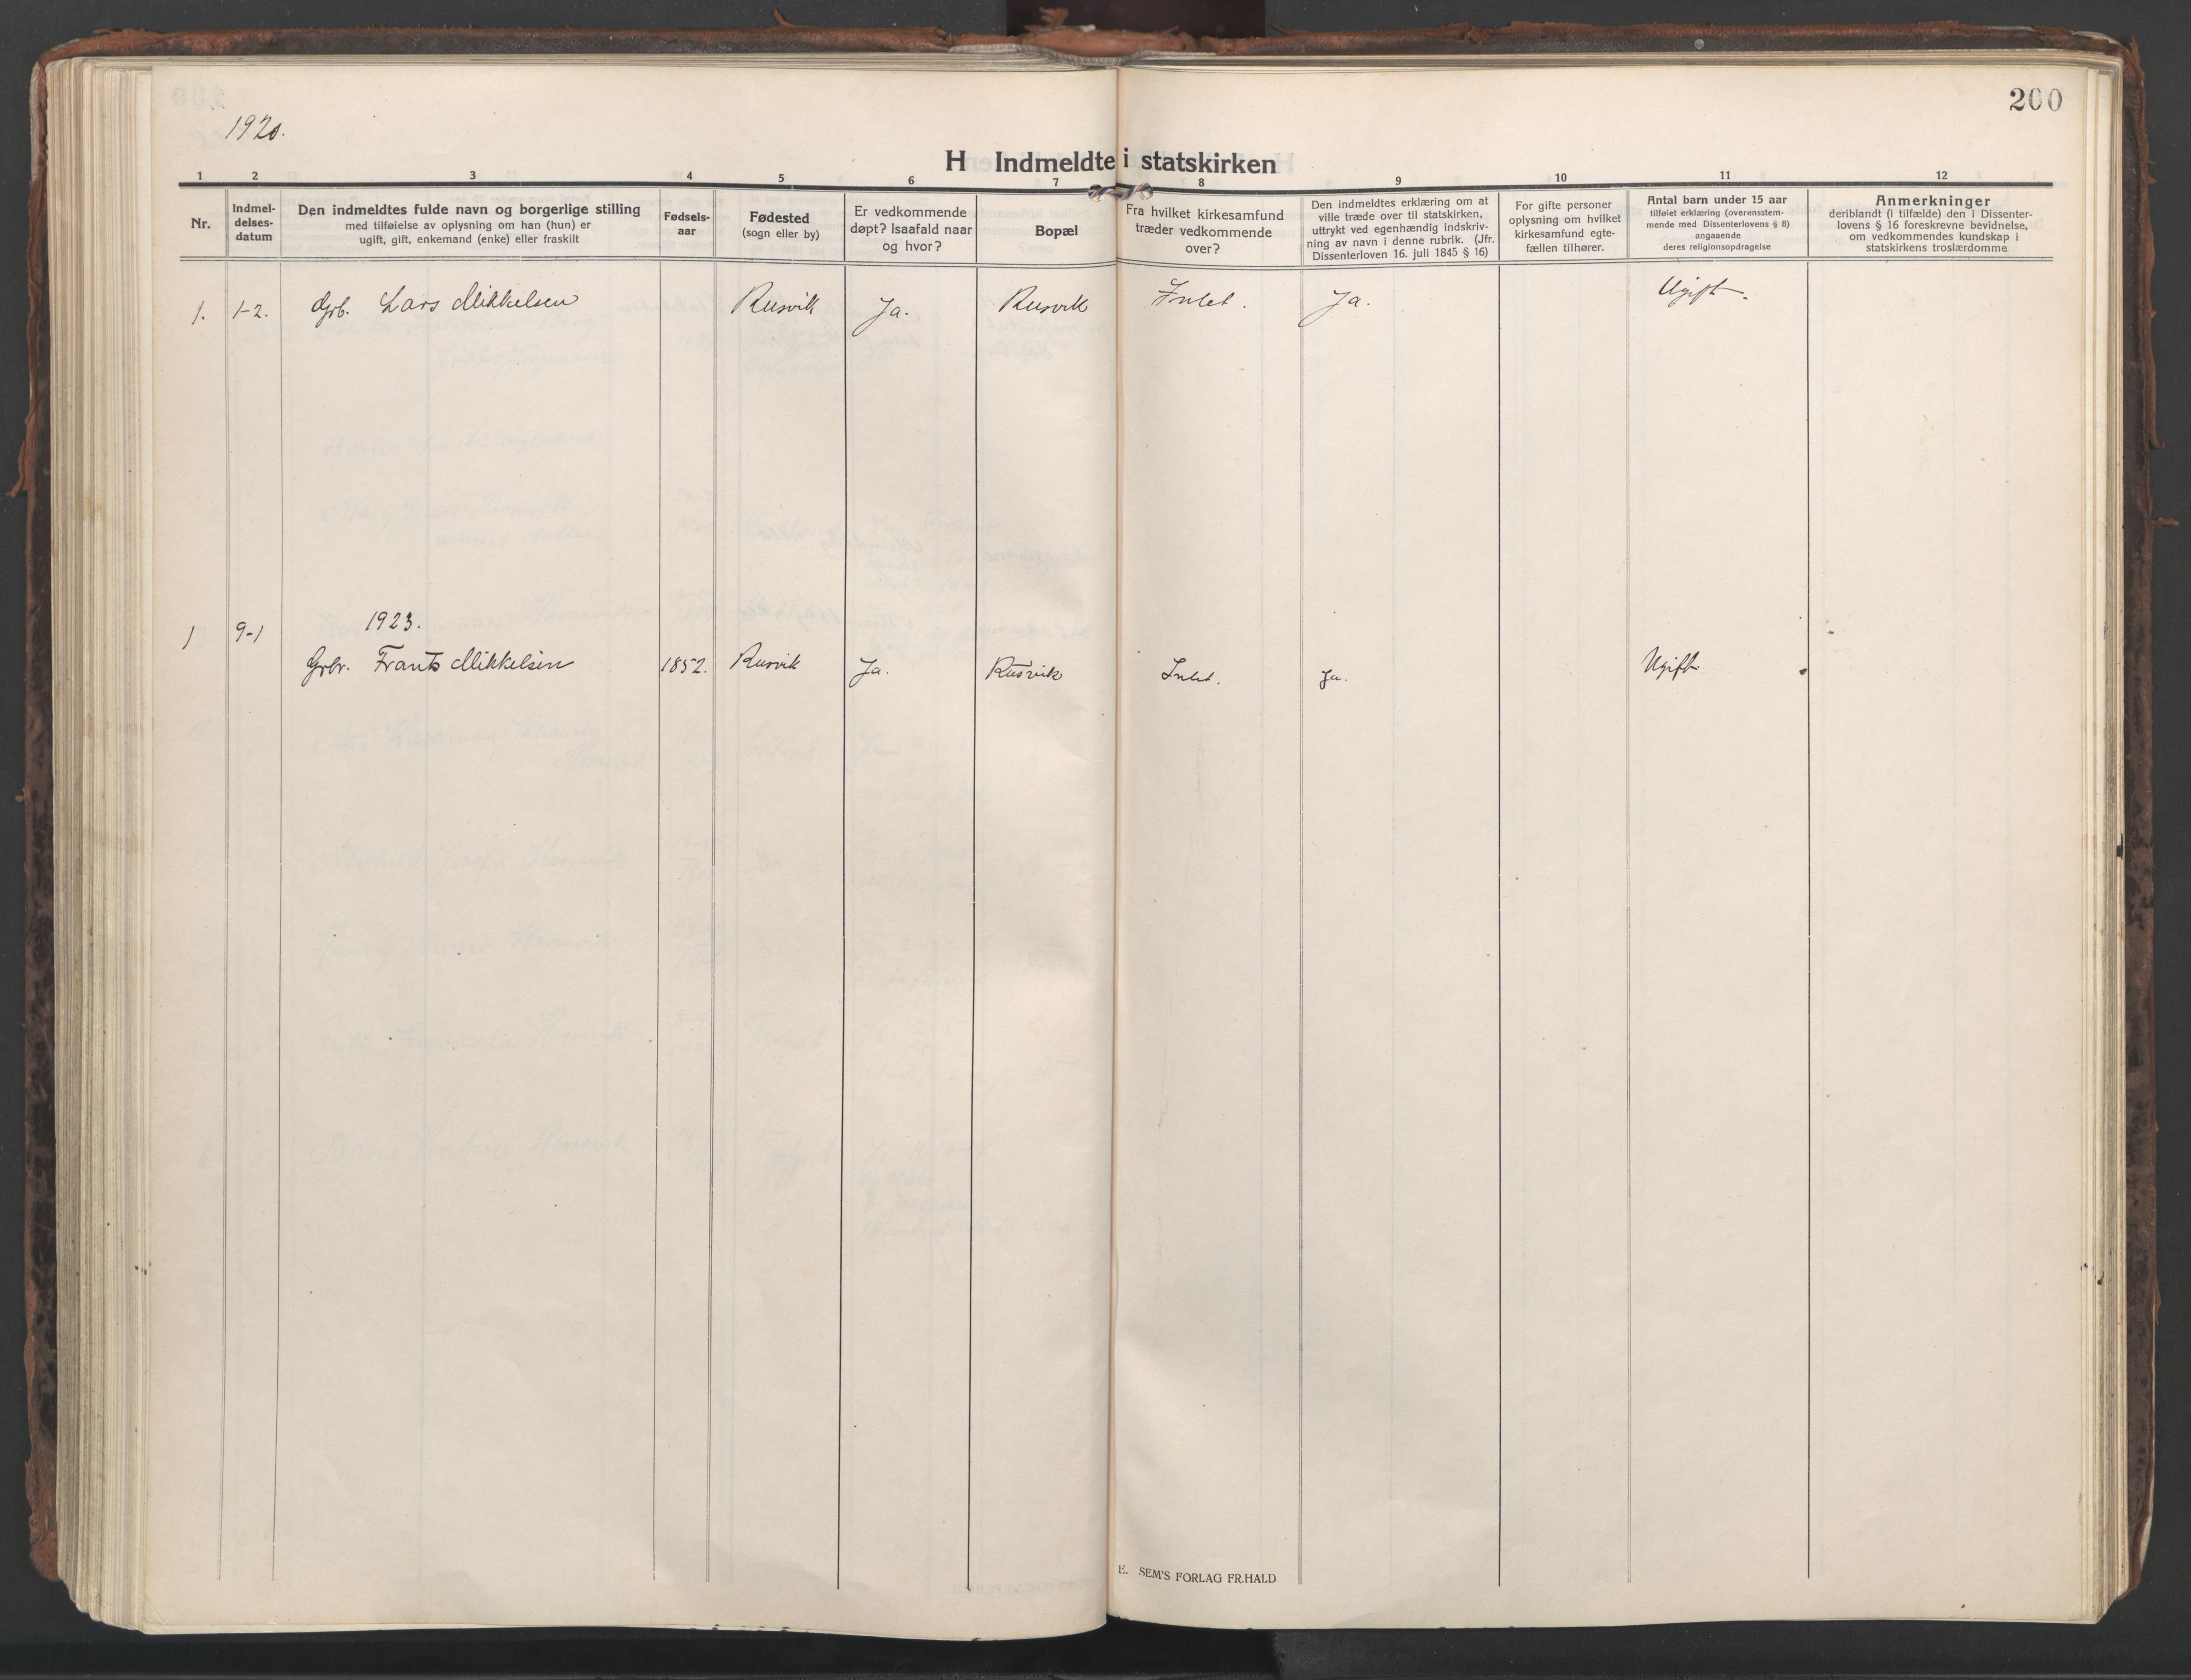 200
1920.
H Indmeldte i statskirken
1 2 3 4 5 6 7 8 9 10 11 12
Nr.
Indmel-
delses-
datum
Den indmeldtes fulde navn og borgerlige stilling
med tilføielse av oplysning om han (hun) er
ugift, gift, enkemand (enke) eller fraskilt
Fødsels-
aar
Fødested
(sogn eller by)
Er vedkommende
døpt? Isaafald naar
og hvor?
Bopæl
Fra hvilket kirkesamfund
træder vedkommende
over?
Den indmeldtes erklæring om at
ville træde over til statskirken,
uttrykt ved egenhændig indskriv-
ning av navn i denne rubrik. (Jfr.
Dissenterloven 16. juli 1845 § 16)
For gifte personer
oplysning om hvilket
kirkesamfund egte-
fællen tilhører.
Antal barn under 15 aar
tilføiet erklæring (overensstem-
mende med Dissenterlovens § 8)
angaaende
deres religionsopdragelse
Anmerkninger
deriblandt (i tilfælde) den i Dissenter-
lovens § 16 foreskrevne bevidnelse,
om vedkommendes kundskap i
statskirkens troslærdomme
1. 1-2. Grb. Lars Mikkelsen Rusvik Ja. Rusvik Intet. Ja. Ugift.
1923.
1 9-1 Grbr. Frants Mikkelsen 1852. Rusvik Ja. Rusvik Intet. Ja. Ugift
E. SEM'S FORLAG FR.HALD